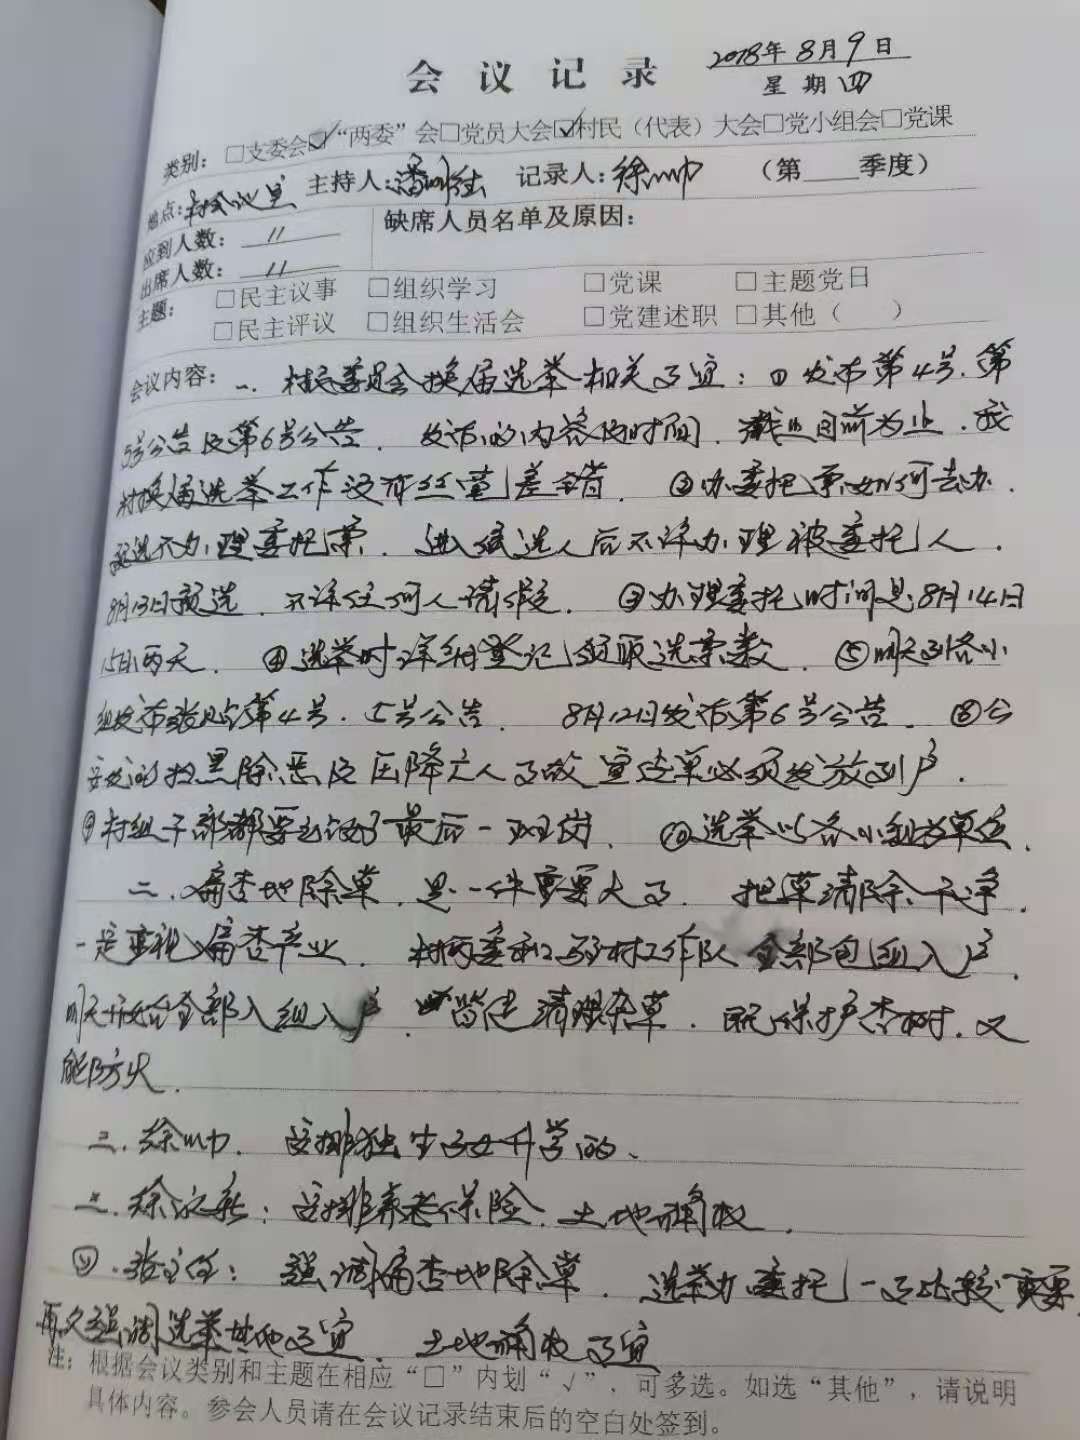 会议记录 2018年8月9日
星期四
类别：□支委会☑“两委”会□党员大会☑村民（代表）大会□党小组会□党课
地点：村会议室 主持人：潘 记录人：徐帅 （第 季度）
应到人数：11 缺席人员名单及原因：
出席人数：11
主题：□民主议事 □组织学习 □党课 □主题党日
□民主评议 □组织生活会 □党建述职 □其他（ ）
会议内容：一、村民委员会换届选举相关事宜：①发布第4号、第
5号公告及第6号公告．发布的内容及时间．截止目前为止．我
村换届选举工作没有丝毫差错．②办委托票如何去办．
预选不办理委托票．进入候选人后不许办理被委托人．
8月13日预选．不许任何人请假．③办理委托时间是8月14日
15日两天．④选举时详细登记领取选票数．⑤明天到各小
组发布张贴第4号、5号公告．8月12日发布第6号公告．⑧公
安发的扫黑除恶及 宣传单必须发放到户．
⑨村组干部都要站好最后一班岗．⑩选举以各小组为单位．
二、扁杏地除草．是一件重要大事．把草清除干净．
一定重视扁杏产业．村两委和驻村工作队全部包组入户．
明天开始全部入组入户． 清理杂草．既保护杏树．又
能防火．
三．徐帅．安排独生子女升学的、
三．徐 新：安排养老保险．土地确权．
四．张主任：强调扁杏地除草．选举办委托一事比较重要
再次强调选举其他事宜．土地确权事宜
注：根据会议类别和主题在相应“□”内划“√”，可多选。如选“其他”，请说明
具体内容。参会人员请在会议记录结束后的空白处签到。